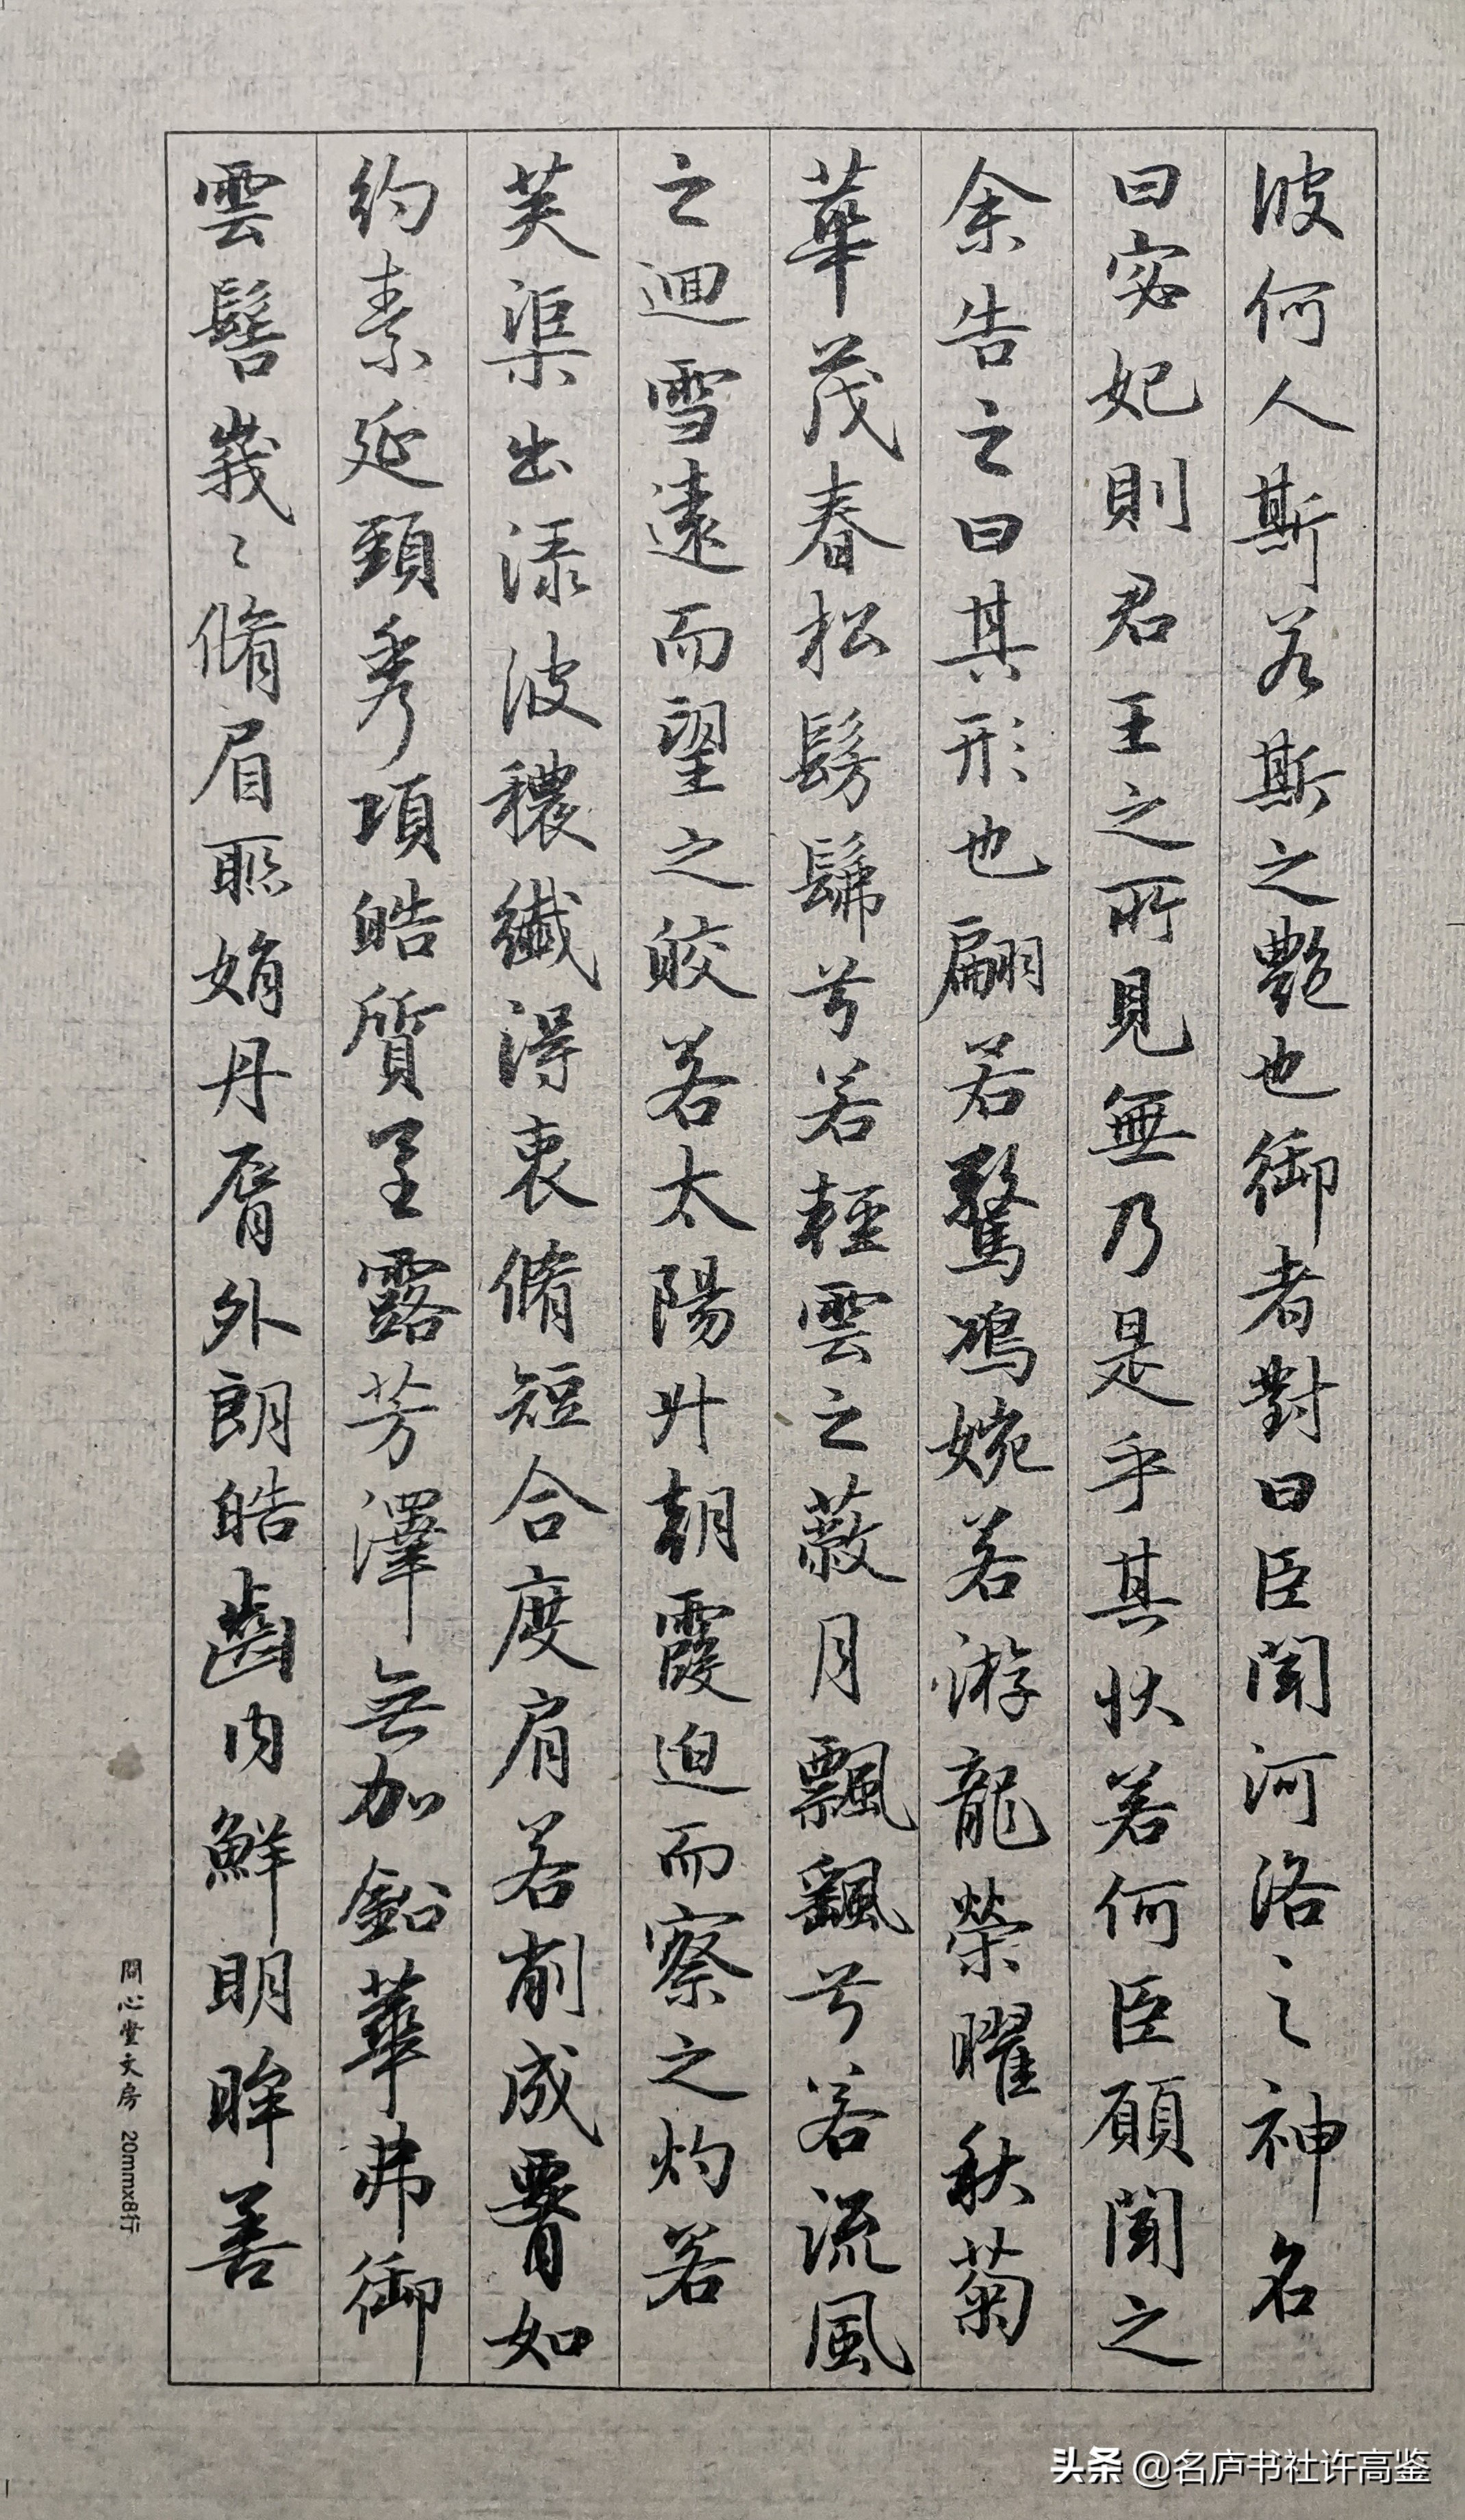 彼何人斯若斯之艷也御者對曰臣聞河洛之神名
曰宓妃則君王之所見無乃是乎其狀若何臣願聞之
余告之曰其形也翩若驚鴻婉若游龍榮曜秋菊
華茂春松髣髴兮若輕雲之蔽月飄颻兮若流風
之迴雪遠而望之皎若太陽升朝霞迫而察之灼若
芙渠出淥波穠纖得衷脩短合度肩若削成腰如
約素延頸秀項皓質呈露芳澤無加鉛華弗御
雲髻峩〻脩眉聯娟丹脣外朗皓齒内鮮明眸善
問心堂文房 20mmx8行
头条 @名庐书社许高鉴